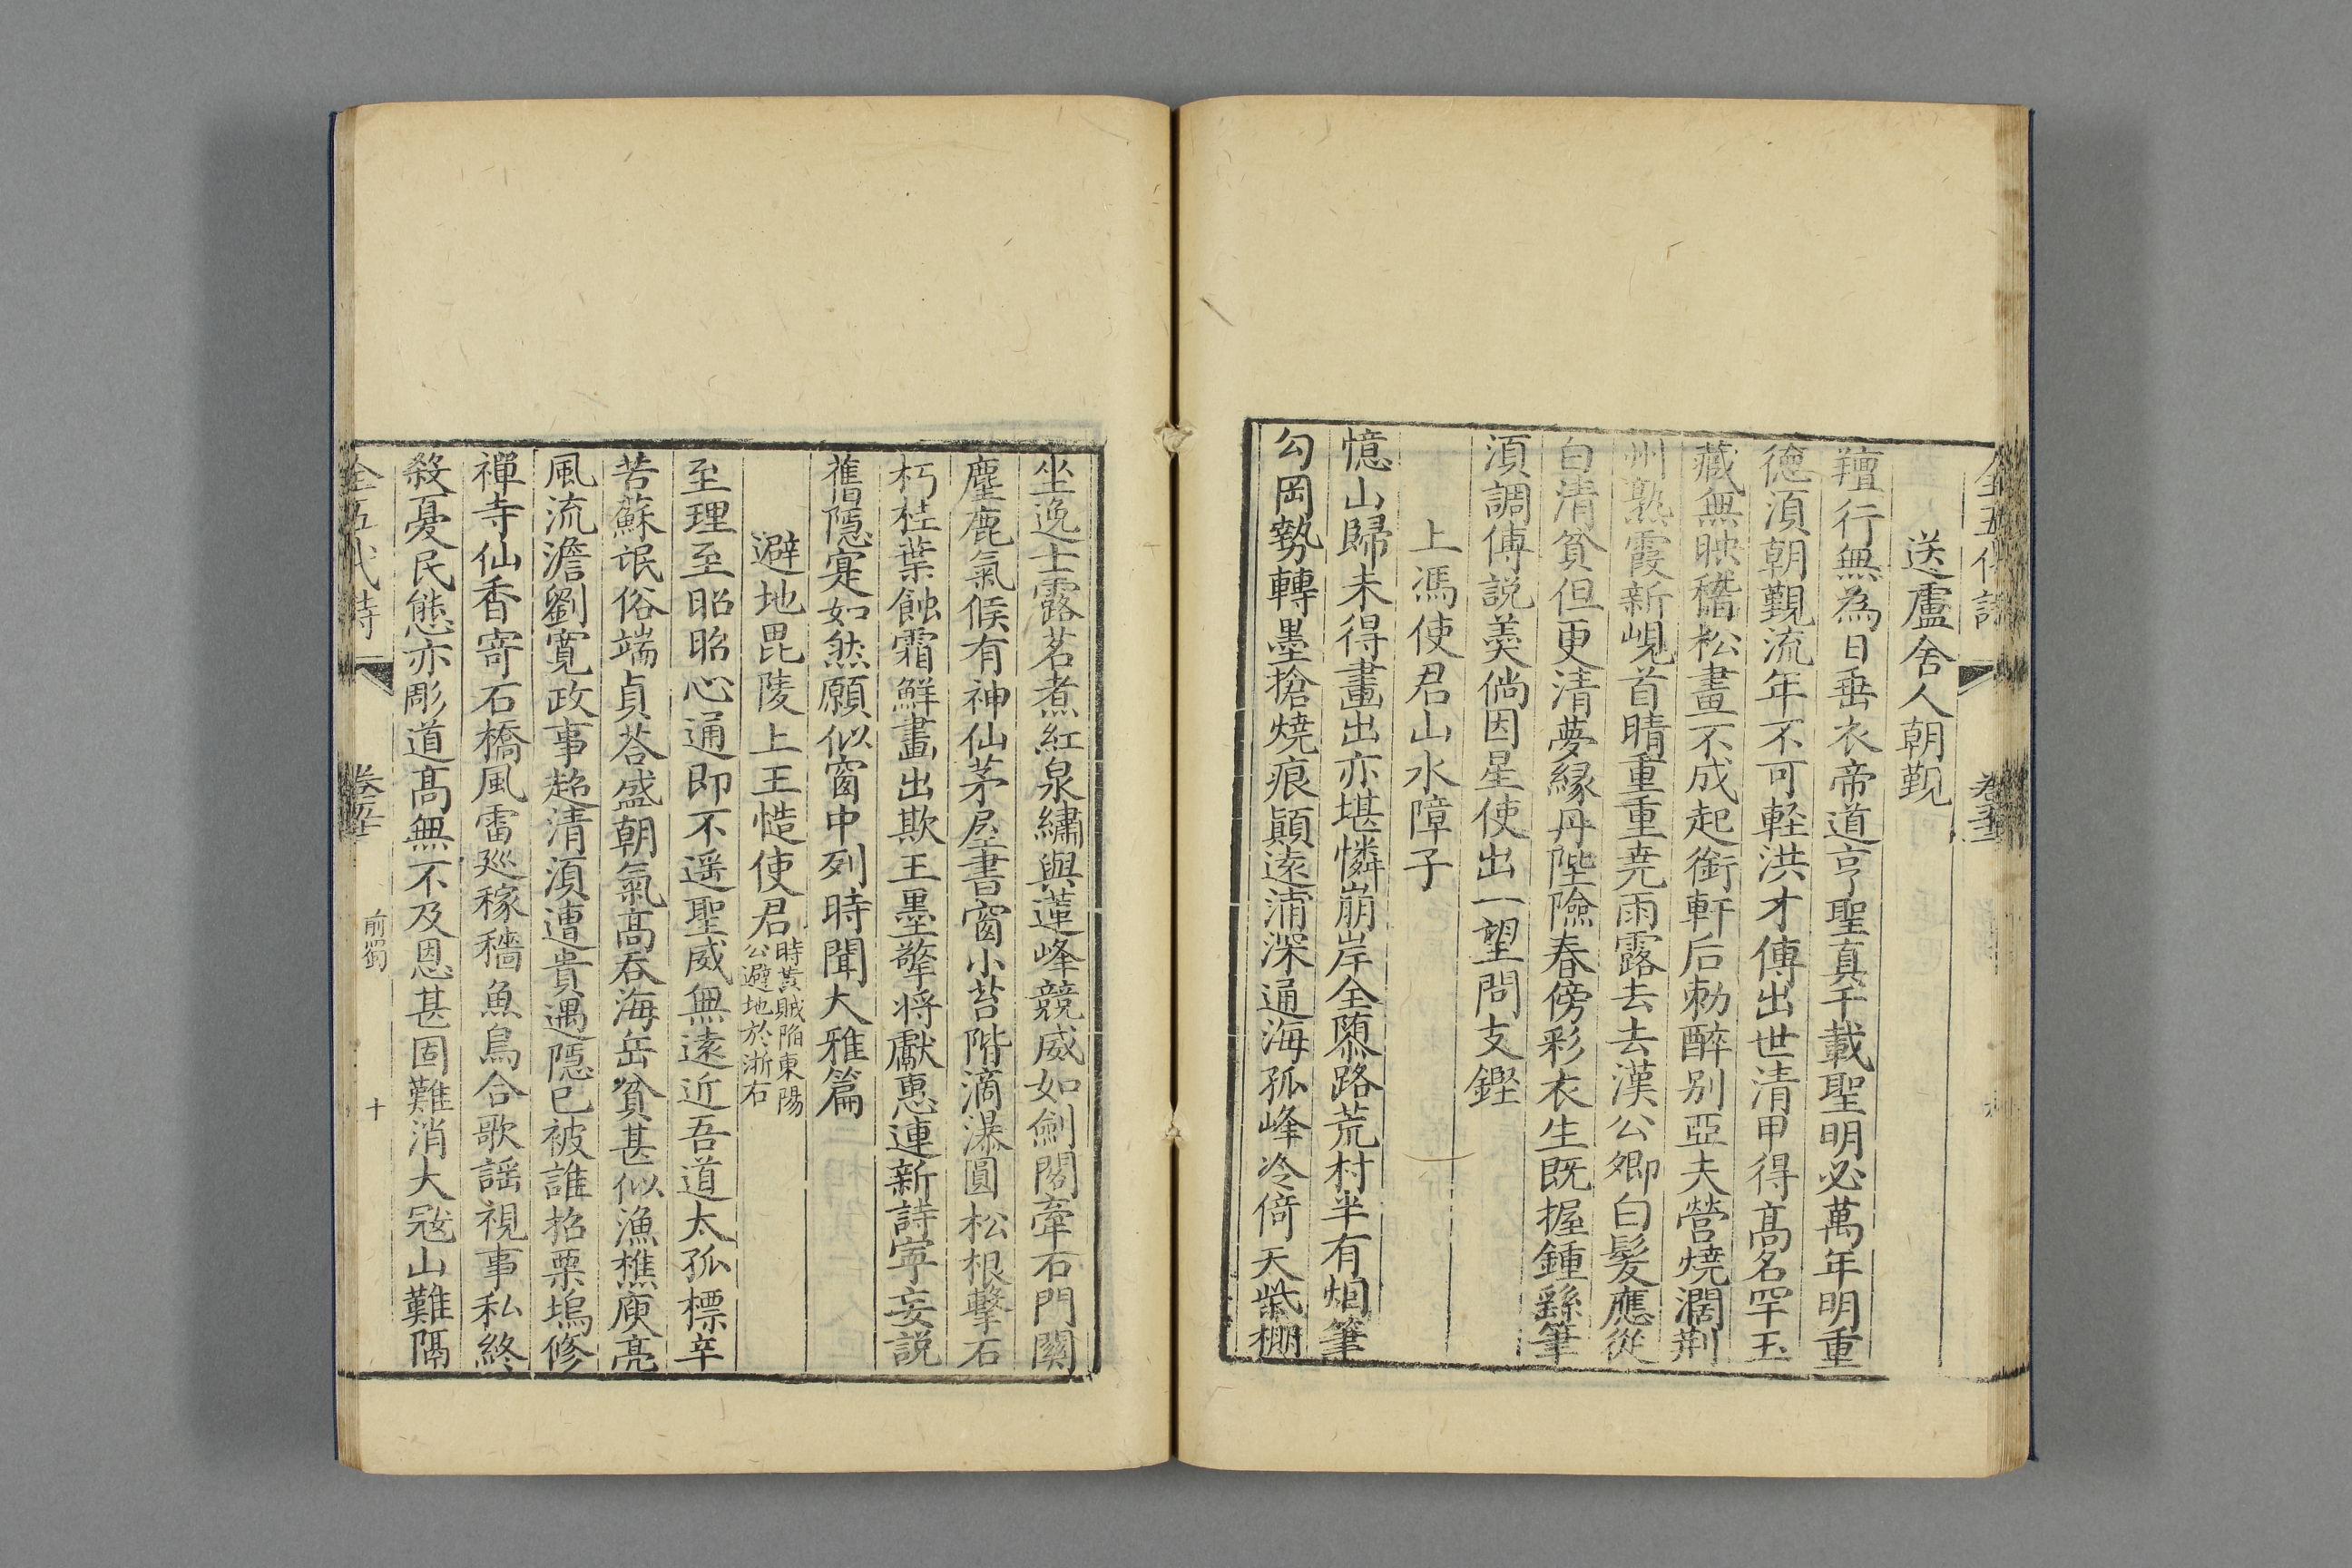 全五代詩
卷五十
送盧舍人朝覲
羶行無為日垂衣帝道亨聖真千載聖明必萬年明重
德須朝覲流年不可輕洪才傳出世清甲得高名罕玉
藏無映嵇松畫不成起銜軒后勅醉别亞夫營燒濶荆
州熟霞新峴首晴重重堯雨露去去漢公卿白髪應從
白清貧但更清夢緣丹陛險春傍彩衣生既握鍾繇筆
須調傅説羹倘因星使出一望問支鏗
上馮使君山水障子
憶山歸未得畫出亦堪憐崩岸全隳路荒村半有烟筆
勾岡勢轉墨搶燒痕顛遠浦深通海孤峰冷倚天柴棚
坐逸士露茗煮紅泉繡與蓮峰競威如劍閣牽石門關
麈鹿氣候有神仙茅屋書窗小苔階滴瀑圓松根擊石
朽桂葉蝕霜鮮畫出欺王墨擎將獻惠連新詩寧妄説
舊隱寔如然願似窗中列時聞大雅篇
避地毘陵上王慥使君時黄賊陷東陽公避地於浙右
至理至昭昭心通即不遥聖威無遠近吾道太孤標辛
苦蘇氓俗端貞荅盛朝氣高吞海岳貧甚似漁樵庾亮
風流澹劉寬政事超清須遭貴遇隱已被誰招栗塢修
禪寺仙香寄石橋風雷廵稼穡魚鳥合歌謡視事私終
殺憂民態亦彫道高無不及恩甚固難消大寇山難隔
全五代詩
前蜀
十